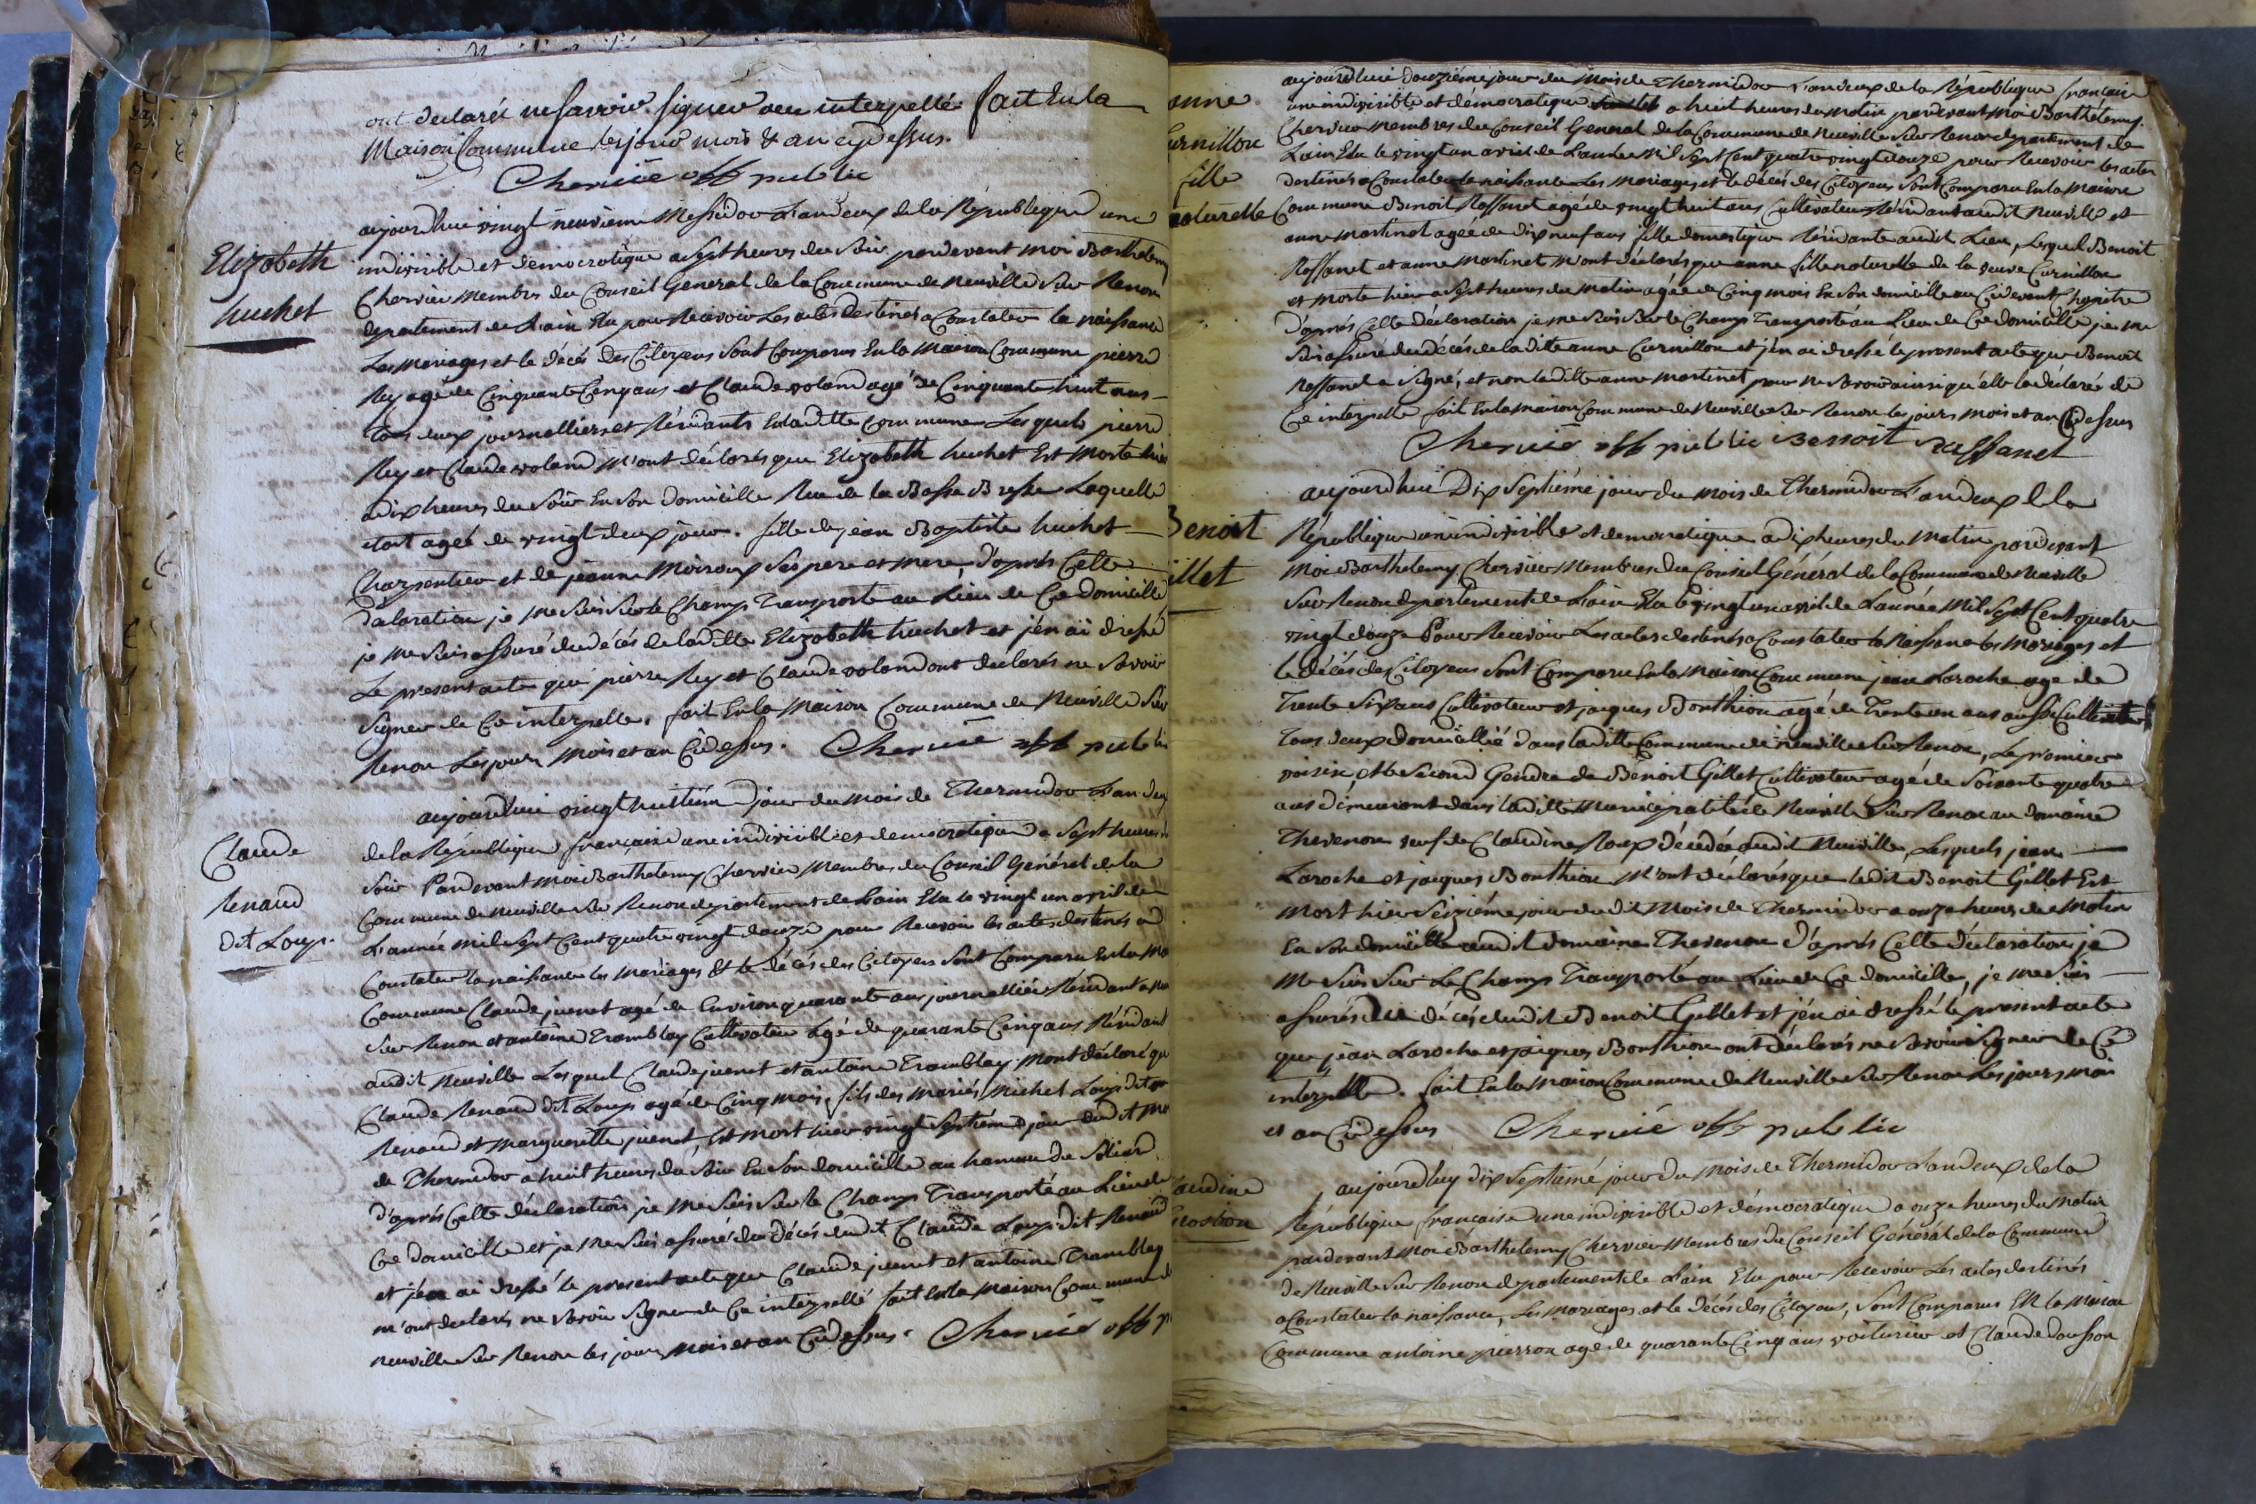 ont declarés ne savoir signer de ce interpellé fait En la
Maison Commune les jour mois & an cy dessus.
Chervié off public
Elizabeth
huchet
aujourd'hui vingt neuvieme Messidor L'an deux de la République une
indivisible et democratique a sept heures du soir pardevant moi Barthelemy
Chervier Membres du Conseil General de la Commune de Neuville Sur Renon
departement de L'ain Elu pour Recevoir Les actes destinés a Constater la naissance
Les Mariages et le décés des Citoyens sont Comparus En la Maison Commune pierre
Rey agé de Cinquante Cinq ans et Claude voland agé de Cinquante huit ans
tous deux journalliers et Résidants En laditte Commune Lesquels pierre
Rey et Claude voland M'ont déclarés que Elizabeth huchet Est Morte hier
a dix heures du soir En son domicille Rue de la Basse Bresse Laquelle
etoit agée de vingt deux jour. fille de jean Baptiste huchet
Charpentier et de jeanne Moiroux ses pere et mere, d'aprés Cette
déclaration je me suis sur le Champ Transporté au Lieu de Ce domicille
je me suis assuré du décés de laditte Elizabeth huchet et j'en ai dressé
Le present acte que pierre Rey et Claude voland ont declarés ne savoir
signer de Ce interpellé. fait En la Maison Commune de Neuville Sur
Renon Les jours Mois et an Cidessus. Chervié off public
Claude
Renaud
dit Loup.
aujourd'hui vingt huitiém jour du Mois de Thermidor L'an deux
de la République française une indivisible et democratique a sept heures du
soir Pardevant moi Barthelemy Chervier Membres du Conseil Genéral de la
Commune de Neuville Sur Renon departement de L'ain Elu le vingt un avril de
L'année mil sept Cent quatre vingt douze pour Recevoir les actes destinés a
Constater la naissance les Mariages & le décés des Citoyens sont Comparu En la Ma
Commune Claude juenet agé de Environ quarante ans journallier Résidant a Neu
Sur Renon et antoine Tramblay Cultivateur agé de quarante Cinq ans Résidant
audit Neuville Lesquel Claude juenet et antoine Tramblay m'ont déclaré que
Claude Renaud dit Loup agé de Cinq mois, fils des Mariés Michel Loup dit
Renaud et Marguerite juenet Est Mort hier vingt septiém jour dudit Mo
de Thermidor a huit heures du soir En son domicille au hameau de
d'aprés Cette déclaration je me suis sur le Champ Transporté au Lieu de
Ce domicille et je me suis assuré du décés dudit Claude Loup dit Renaud
et j'en ai dressé le present acte que Claude juenet et antoine Tramblay
m'ont declarés ne savoir signer de Ce interpellé fait En la Maison Commune de
Neuville Sur Renon les jour mois et an Cidessus. Chervié off p
anne
urnillon
fille
naturelle
aujourd'hui douziéme jour du Mois de Thermidor L'an deux de la République française
une indivisible et démocratique a huit heures du Matin pardevant Moi Barthélemy
Chervier Membres du Conseil General de la Commune de Neuville Sur Renon departement de
L'ain Elu le vingt un avril de L'année Mil Sept Cent quatre vingt douze pour Recevoir les actes
destinés a Constater la naissance Les Mariages et le décés des Citoyens sont Comparu En la Maison
Commune Benoit Rassanet agé de vingt huit ans Cultivateur Résidant audit Neuville et
anne Martinet agée de dix neuf ans fille domestique Résidante audit Lieu, Lesquel Benoit
Rassanet et anne Martinet m'ont déclarés que anne fille naturelle de la veuve Curnillon
est morte hier a sept heures du Matin agée de Cinq mois En son domicille au Cidevant Chapitre
d'aprés Cette déclaration je me suis sur le Champ Transporté au Lieu de Ce domicille je me
suis assuré du décés de ladite anne Curnillon et j'en ai dressé le present acte que Benoit
Rassanet a signé, et non laditte anne Martinet pour ne savoir ainsi qu'elle l'a déclarée de
Ce interpellé fait En la Maison Commune de Neuville Sur Renon les jours mois et an Cidessus
Chervié off public Benoit Rassanet
Benoit
illet
aujourd'hui Dix Septiéme jour du Mois de Thermidor L'an deux de la
République une indivisible et democratique a dix heures du Matin pardevant
Moi Barthelemy Chervier Membres du Conseil Général de la Commune de Neuville
Sur Renon departement de L'ain Elu le vingt un avril de L'année Mil Sept Cent quatre
vingt douze Pour Recevoir Les actes destinés a Constater la Naissance les Mariages et
le décés des Citoyens sont Comparu En la Maison Commune jean Laroche agé de
Trente Six ans Cultivateur et jacques Bonthion agé de Trente un ans aussi Cultivateur
Tous deux domicillié dans laditte Commune de Neuville Sur Renon, Le premier
voisin et le Second Gendre de Benoit Gillet Cultivateur agé de Soixante quatre
ans démeurant dans laditte Municipalité de Neuville Sur Renon au domaine
Thevenon veuf de Claudine Roux décédée audit Neuville, Lesquels jean
Laroche et jacques Bonthion M'ont déclarés que ledit Benoit Gillet Est
Mort hier Seiziéme jour dudit Mois de Thermidor a onze heures du Matin
En son domicille audit domaine Thevenon d'aprés Cette déclaration je
Me suis sur Le Champ Transporté au Lieu de Ce domicille, je me suis
assurés du décés dudit Benoit Gillet et j'en ai dressé le present acte
que jean Laroche et jacques Bonthion ont déclarés ne savoir signer de Ce
interpellé. fait En la Maison Commune de Neuville Sur Renon Les jours mois
et an Cidessus Chervié off public
audine
aujourd'huy dix Septiéme jour du Mois de Thermidor L'an deux de la
République française une indivisible et démocratique a onze heures du Matin
pardevant Moi Barthelemy Chervier Membres du Conseil Général de la Commune
de Neuville Sur Renon departement de L'ain Elu pour Recevoir Les actes destinés
a Constater la naissance, Les Mariages et le décés des Citoyens, sont Comparus En la Maison
Commune antoine pierron agé de quarante Cinq ans voiturier et Claude